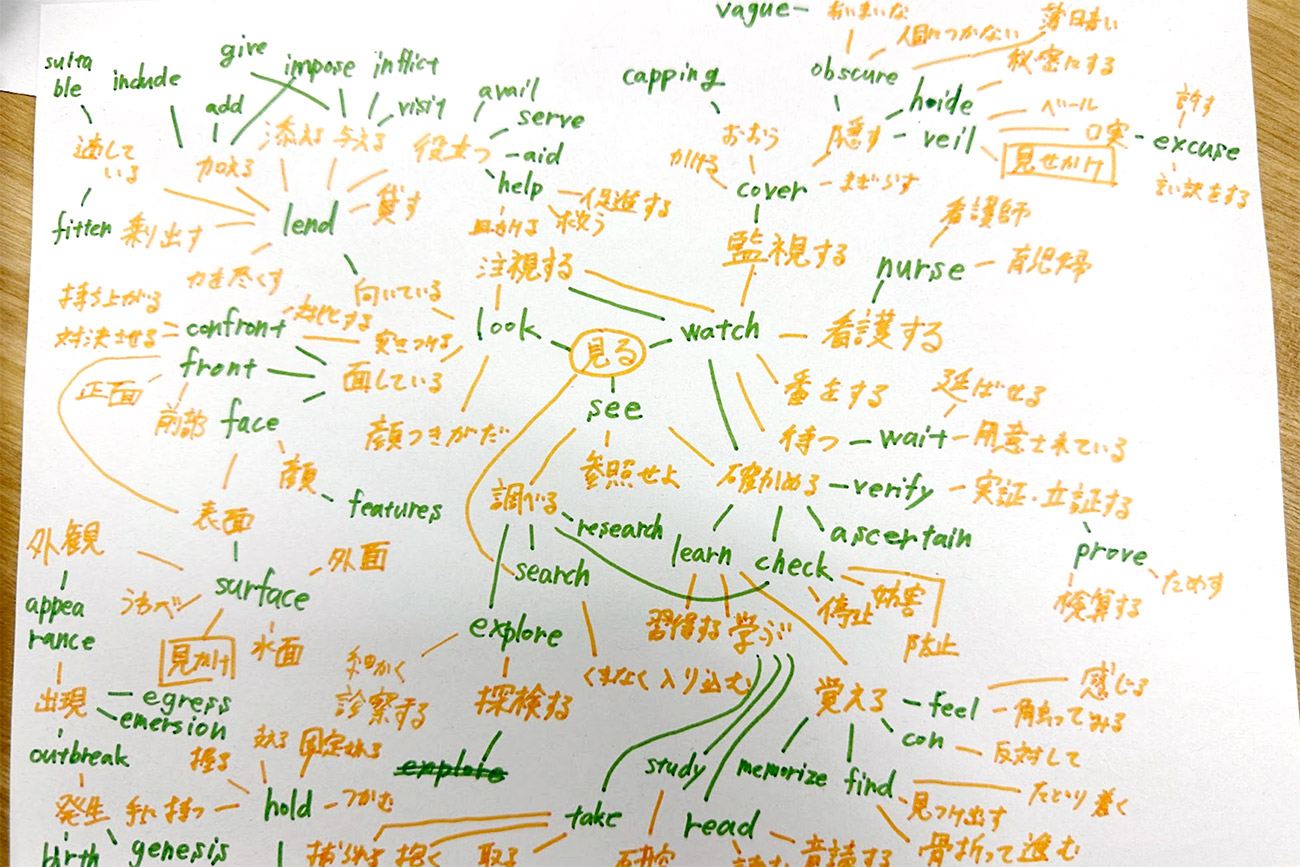 vague
あいまいな
薄日暮い
人目につかない
秘密にする
obscure
hide
ベール
許す
隠す
veil
口実
excuse
見せかけ
言い訳をする
capping
おおう
かける
cover
まぎらす
suita
ble
include
give
impose
inflict
add
visit
avail
serve
aid
help
促進する
救う
適して
いる
加える
添える
与える
役立つ
fitten
乗り出す
lend
貸す
力を尽くす
注視する
監視する
看護師
nurse
育児婦
持ち上がる
対決させる
confront
向いている
突きつける
look
見る
watch
看護する
front
面している
正面
前部
face
顔つきがだ
see
番をする
延ばせる
待つ
wait
用意士来ている
顔
features
参照せよ
確かめる
verify
実証・立証する
調べる
research
ascertain
prove
ためす
検算する
表面
外観
外面
surface
うわべ
水面
見かけ
appea
rance
search
learn
check
妨害
停止
防止
explore
習得する
学ぶ
細かく
診察する
探検する
くまなく入り込む
覚える
feel
感じる
触ってみる
con
反対して
出現
egress
emersion
outbreak
握る
固定される
explore
study
memorize
find
たどり着く
見つけ出す
骨折って進む
発生
手に持つ
hold
つかむ
take
read
音読する
birth
genesis
捕らえる
抱く
取る
研究